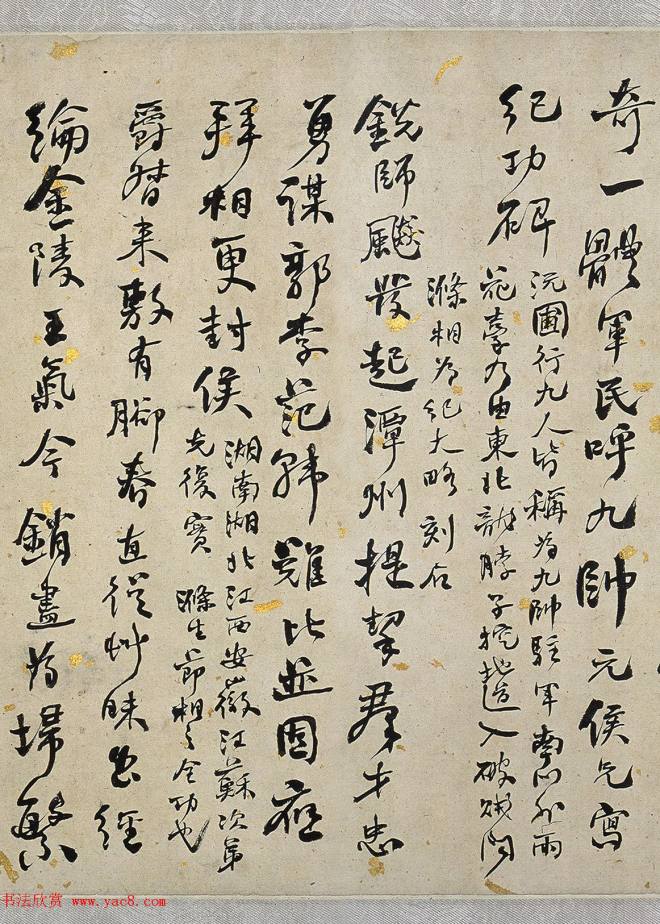 奇一體軍民呼九帥元侯兄寫
紀功碑
沅圃行九人皆稱為九帥駐軍南門外雨
花臺乃由東北龍脖子挖地道入破城
滌相為紀大略刻石
銳師飈發起潭州提挈羣才忠
勇謀郭李范韓難比並固應
拜相更封侯
湖南湖北江西安薇江蘇次第
克復實滌生節相之全功也
爵督来敷有腳春直從艸昧出經
綸金陵王氣今銷盡為埽繁
书法欣赏 www.yac8.com